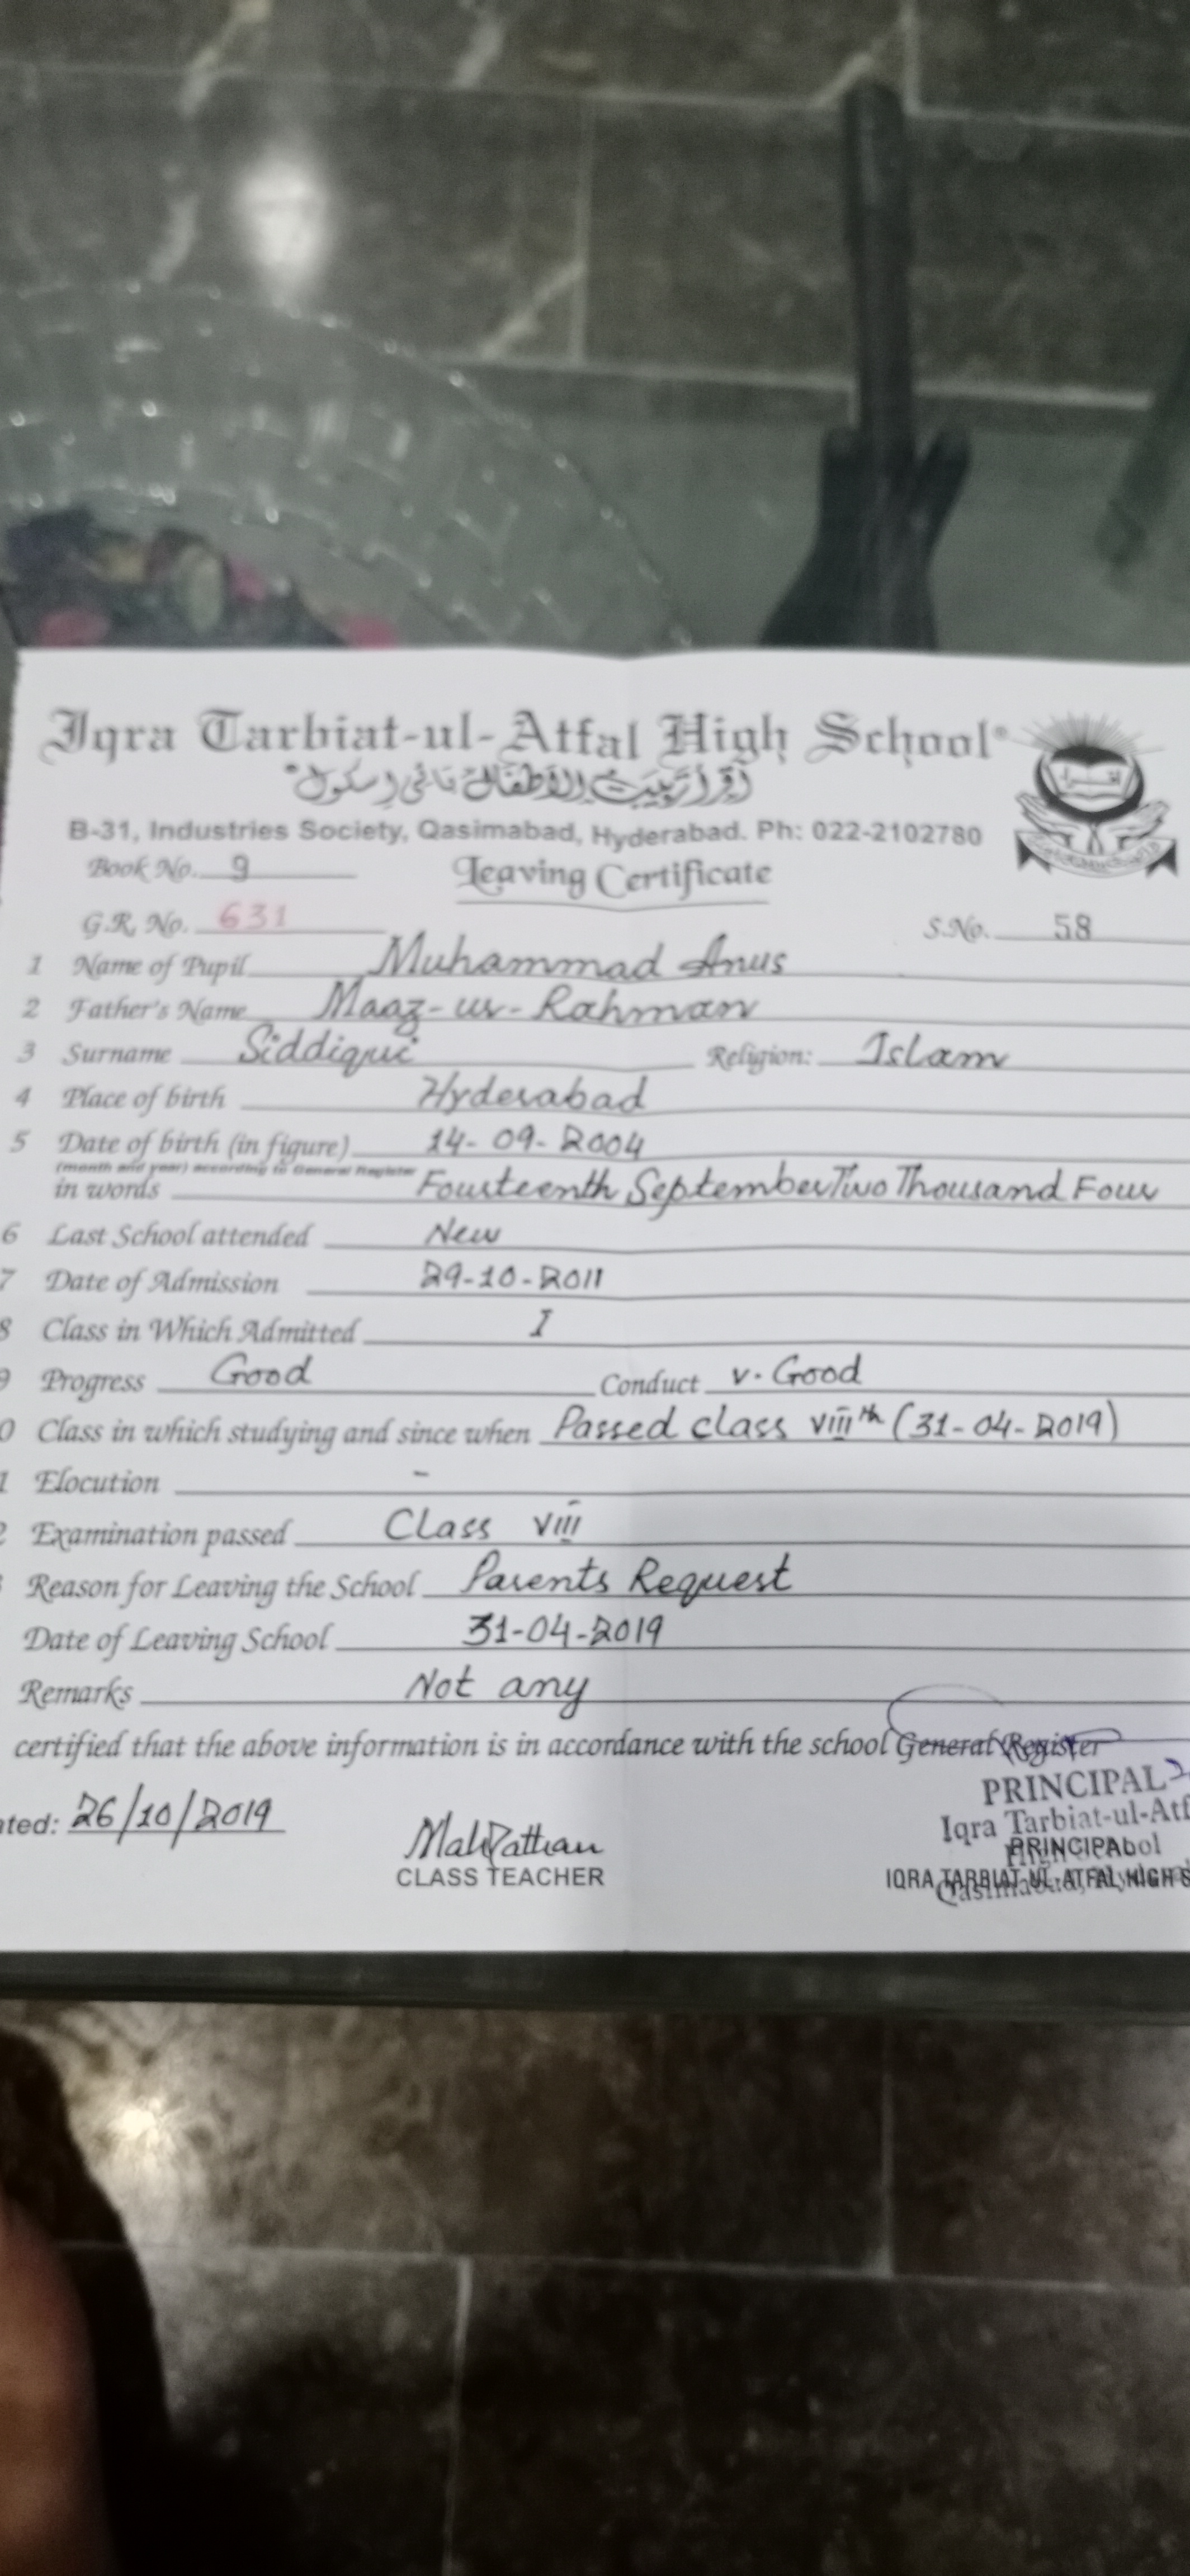 Iqra Tarbiat-ul-Atfal High School®
اقرأ تربیت الاطفال ہائی اسکول
B-31, Industries Society, Qasimabad, Hyderabad. Ph: 022-2102780
Book No. 9 Leaving Certificate
G.R. No. 631 S.No. 58
1 Name of Pupil Muhammad Anus
2 Father's Name Maaz-ur-Rahman
3 Surname Siddiqui Religion: Islam
4 Place of birth Hyderabad
5 Date of birth (in figure) 14-09-2004
(month and year) according to General Register
in words Fourteenth September Two Thousand Four
6 Last School attended New
7 Date of Admission 29-10-2011
8 Class in Which Admitted I
9 Progress Good Conduct v. Good
0 Class in which studying and since when Passed class VIIIth (31-04-2019)
1 Elocution -
2 Examination passed Class VIII
Reason for Leaving the School Parents Request
Date of Leaving School 31-04-2019
Remarks Not any
certified that the above information is in accordance with the school General Register
ated: 26/10/2019
CLASS TEACHER
PRINCIPAL
Iqra Tarbiat-ul-Atf
PRINCIPAL
IQRA TARBIAT-UL-ATFAL HIGH S